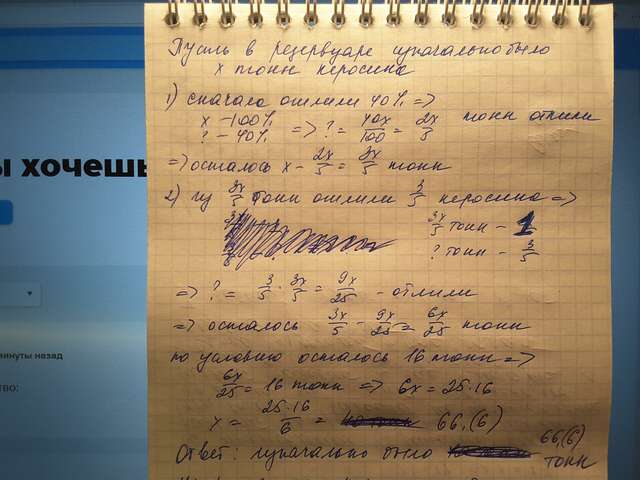 ы хочешь
минуты назад
тво:
Пусть в резервуаре изначально было
x тонн керосина
1) сначала отлили 40% =>
x - 100%
? - 40%
=> ? = 40x/100 = 2x/5 тонн отлили
=> осталось x - 2x/5 = 3x/5 тонн
2) из 3x/5 тонн отлили 3/5 керосина =>
3x/5 тонн - 1
? тонн - 3/5
=> ? = 3/5 · 3x/5 = 9x/25 - отлили
=> осталось 3x/5 - 9x/25 = 6x/25 тонн
по условию осталось 16 тонн =>
6x/25 = 16 тонн => 6x = 25·16
x = 25·16/6 = 66,(6)
Ответ: изначально было 66,(6) тонн